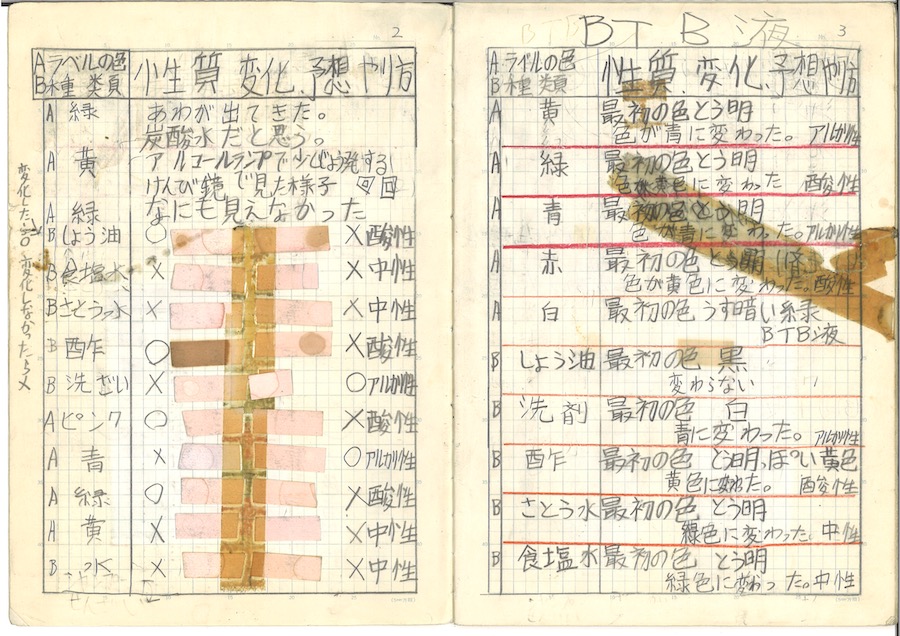 2
Aラベルの色
B種類
性質 変化.予想 やり方
A 緑 あわが出てきた。
炭酸水だと思う。
A 黄 アルコールランプで少しじょう発する
けんび鏡で見た様子
A 緑 なにも見えなかった
B しょう油 ○ ×酸性
B 食塩水 × ×中性
B さとう水 × ×中性
B 酢 ○ ×酸性
B 洗ざい × ○アルカリ性
A ピンク ○ ×酸性
A 青 × ○アルカリ性
A 緑 ○ ×酸性
A 黄 × ×中性
B 水 × ×中性
変化したら○変化しなかったら×
BTB液
3
Aラベルの色
B種類
性質.変化.予想やり方
A 黄 最初の色とう明
色が青に変わった。アルカリ性
A 緑 最初の色とう明
色が黄色に変わった 酸性
A 青 最初の色とう明
色が青に変わった。アルカリ性
A 赤 最初の色 とう明
色が黄色に変わった。酸性
A 白 最初の色 うす暗い緑
BTB液
B しょう油 最初の色 黒
変わらない
B 洗剤 最初の色 白
青に変わった。アルカリ性
B 酢 最初の色 とう明っぽい黄色
黄色に変わった。 酸性
B さとう水 最初の色 とう明
緑色に変わった 中性
B 食塩水 最初の色 とう明
緑色に変わった。中性